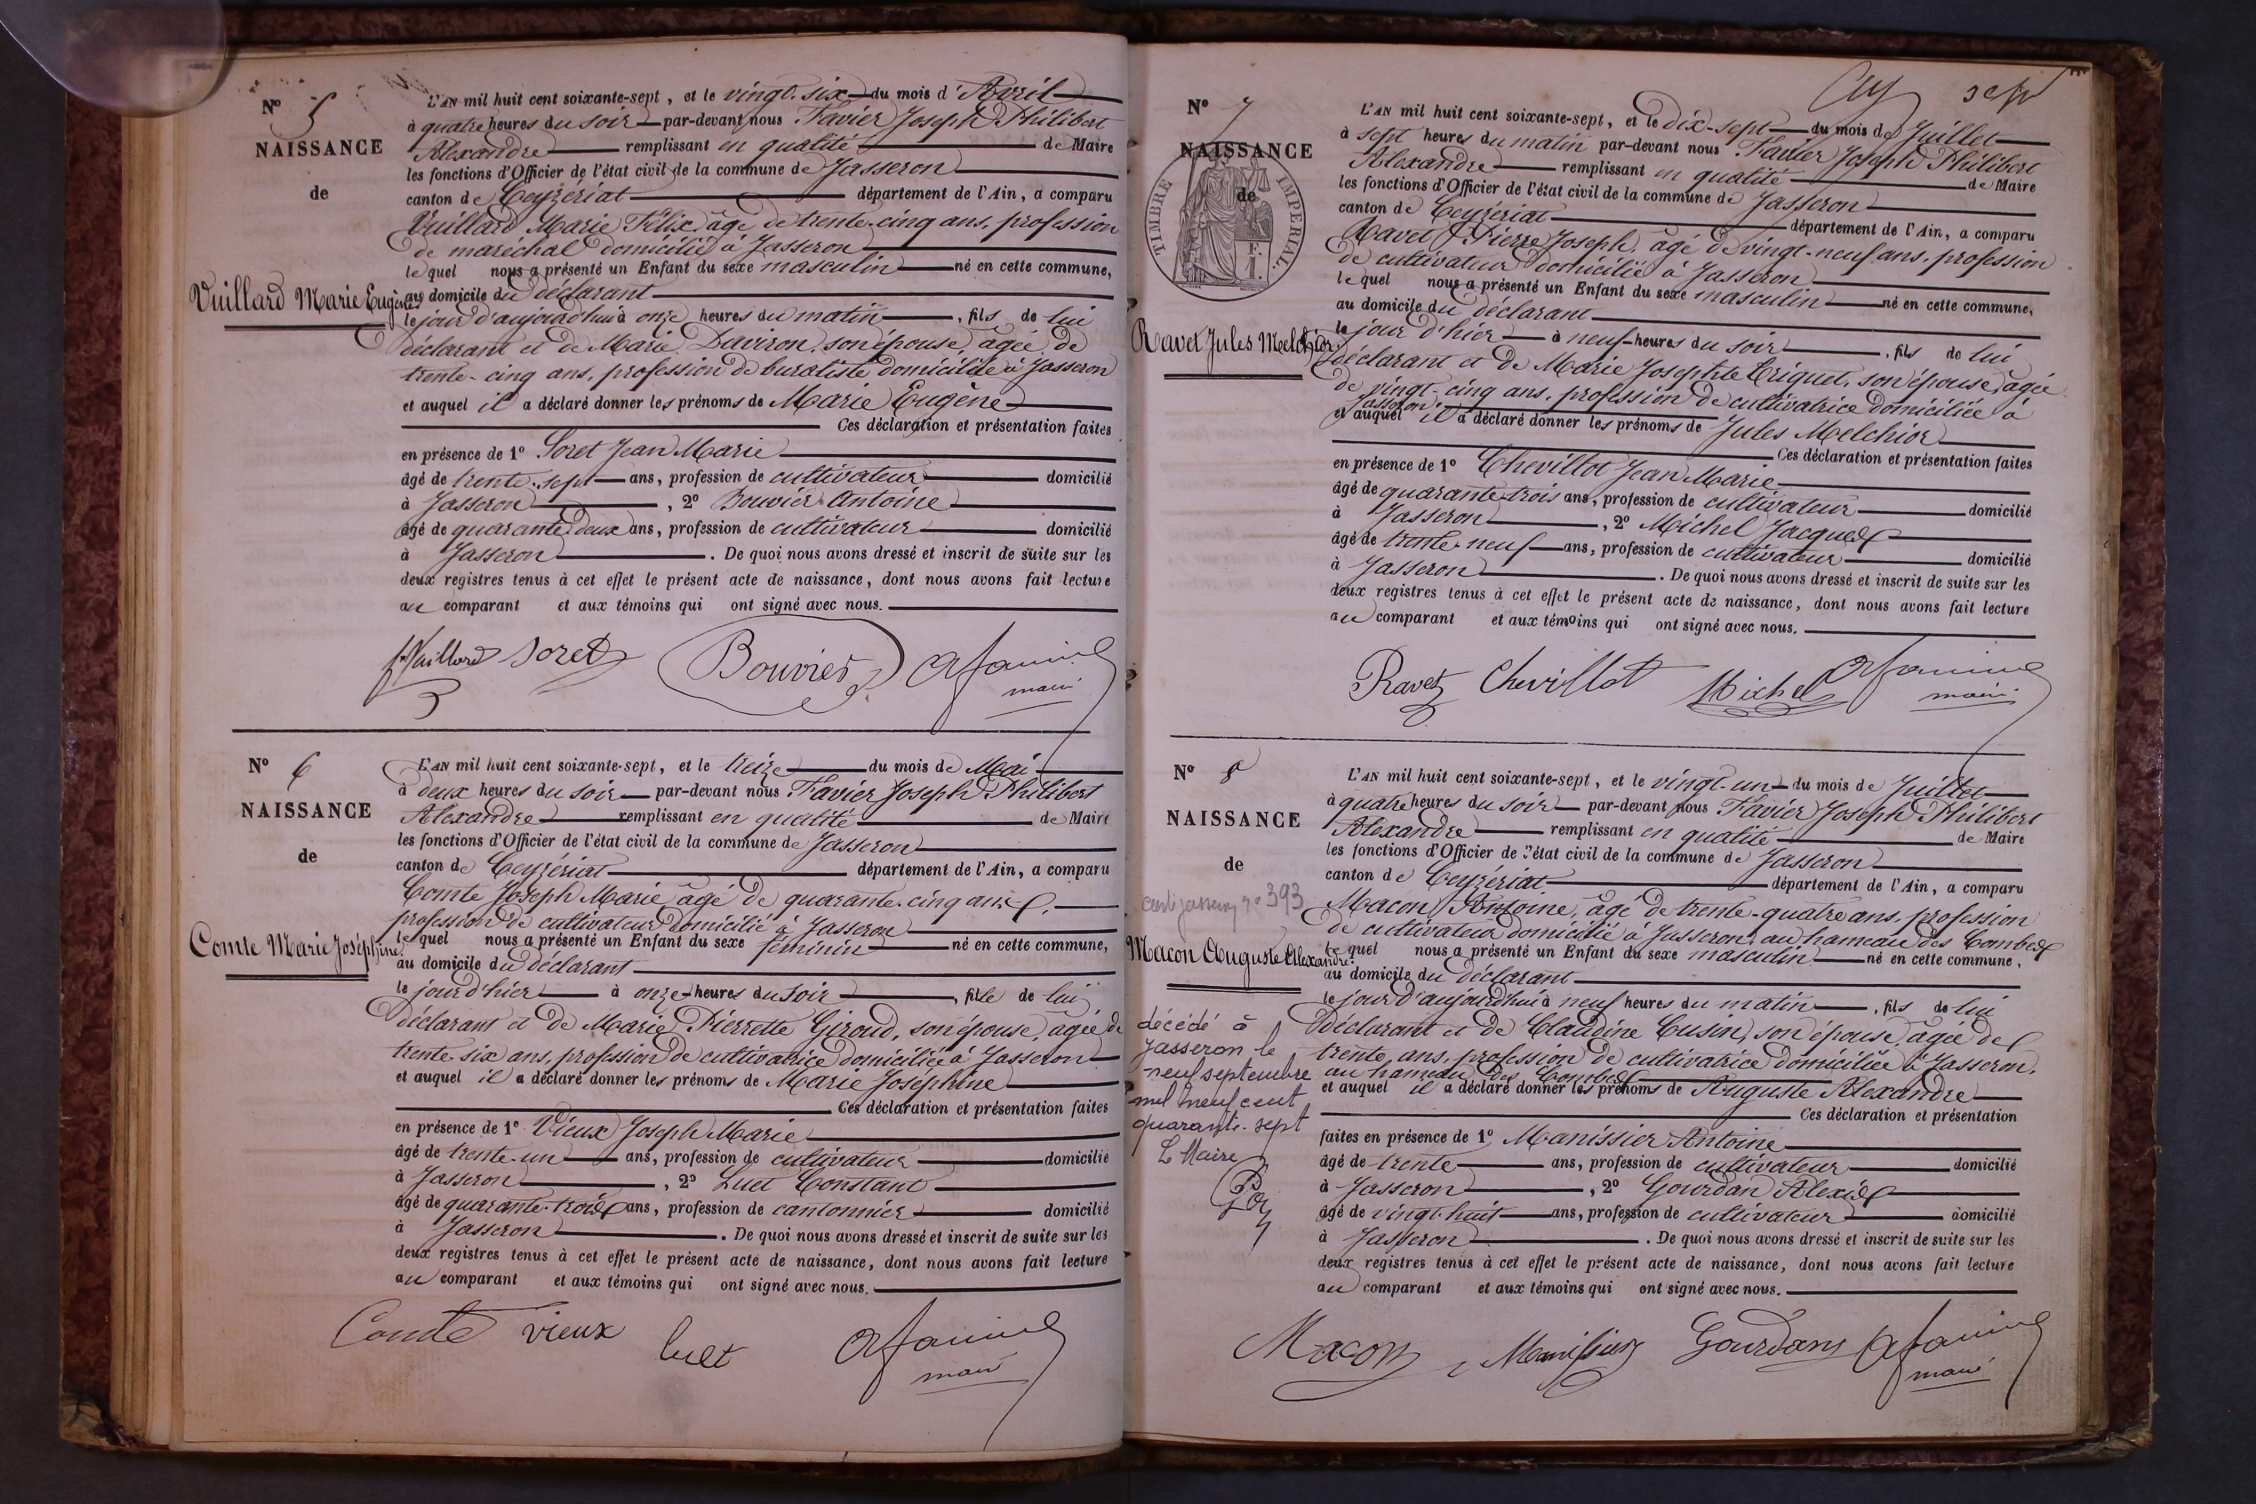 N° 5
NAISSANCE
de
Vuillard Marie Eugène
L'AN mil huit cent soixante-sept, et le vingt-six du mois d'Avril
à quatre heures du soir par-devant nous Favier Joseph Philibert
Alexandre remplissant en qualité de Maire
les fonctions d'Officier de l'état civil de la commune de Jasseron
canton de Ceyzériat département de l'Ain, a comparu
Vuillard Marie Félix âgé de trente-cinq ans, profession
de maréchal domicilié à Jasseron
lequel nous a présenté un Enfant du sexe masculin né en cette commune,
au domicile du déclarant
le jour d'aujourd'hui à onze heures du matin, fils de lui
déclarant et de Marie Daviron, son épouse, agée de
trente-cinq ans, profession de buraliste domiciliée à Jasseron
et auquel il a déclaré donner les prénoms de Marie Eugène
Ces déclaration et présentation faites
en présence de 1° Soret Jean Marie
âgé de trente-sept ans, profession de cultivateur domicilié
à Jasseron, 2° Bouvier Antoine
âgé de quarante deux ans, profession de cultivateur domicilié
à Jasseron. De quoi nous avons dressé et inscrit de suite sur les
deux registres tenus à cet effet le présent acte de naissance, dont nous avons fait lecture
au comparant et aux témoins qui ont signé avec nous.
Vuillard Soret Bouvier Afavier
maire
N° 6
NAISSANCE
de
Comte Marie Joséphine
L'AN mil huit cent soixante-sept, et le treize du mois de Mai
à deux heures du soir par-devant nous Favier Joseph Philibert
Alexandre remplissant en qualité de Maire
les fonctions d'Officier de l'état civil de la commune de Jasseron
canton de Ceyzériat département de l'Ain, a comparu
Comte Joseph Marie âgé de quarante-cinq ans,
profession de cultivateur domicilié à Jasseron
lequel nous a présenté un Enfant du sexe féminin né en cette commune,
au domicile du déclarant
le jour d'hier à onze heures du soir, fille de lui
déclarant et de Marie Pierrette Giroud, son épouse, agée de
trente-six ans, profession de cultivatrice domiciliée à Jasseron
et auquel il a déclaré donner les prénoms de Marie Joséphine
Ces déclaration et présentation faites
en présence de 1° Vieux Joseph Marie
âgé de trente-un ans, profession de cultivateur domicilié
à Jasseron, 2° Luet Constant
âgé de quarante-trois ans, profession de cantonnier domicilié
à Jasseron. De quoi nous avons dressé et inscrit de suite sur les
deux registres tenus à cet effet le présent acte de naissance, dont nous avons fait lecture
au comparant et aux témoins qui ont signé avec nous.
Comte vieux luet Afavier
maire
N° 7
NAISSANCE
de
TIMBRE IMPERIAL
F. 1
Ravet Jules Melchior
L'AN mil huit cent soixante-sept, et le dix-sept du mois de Juillet
à sept heures du matin par-devant nous Favier Joseph Philibert
Alexandre remplissant en qualité de Maire
les fonctions d'Officier de l'état civil de la commune de Jasseron
canton de Ceyzériat département de l'Ain, a comparu
Ravet Pierre Joseph, âgé de vingt-neuf ans, profession
de cultivateur domicilié à Jasseron
lequel nous a présenté un Enfant du sexe masculin né en cette commune,
au domicile du déclarant
le jour d'hier à neuf heures du soir, fils de lui
déclarant et de Marie Josephte Criquet, son épouse, agée
de vingt-cinq ans, profession de cultivatrice domiciliée à
Jasseron
et auquel il a déclaré donner les prénoms de Jules Melchior
Ces déclaration et présentation faites
en présence de 1° Chevillot Jean Marie
âgé de quarante-trois ans, profession de cultivateur domicilié
à Jasseron, 2° Michel Jacques
âgé de trente-neuf ans, profession de cultivateur domicilié
à Jasseron. De quoi nous avons dressé et inscrit de suite sur les
deux registres tenus à cet effet le présent acte de naissance, dont nous avons fait lecture
au comparant et aux témoins qui ont signé avec nous.
Ravet Chevillot Michel Afavier
maire
N° 8
NAISSANCE
de
393
Macon Auguste Alexandre
décédé à
Jasseron le
neuf septembre
mil neuf cent
quarante-sept
Le Maire
L'AN mil huit cent soixante-sept, et le vingt-un du mois de Juillet
à quatre heures du soir par-devant nous Favier Joseph Philibert
Alexandre remplissant en qualité de Maire
les fonctions d'Officier de l'état civil de la commune de Jasseron
canton de Ceyzériat département de l'Ain, a comparu
Macon Antoine, âgé de trente-quatre ans, profession
de cultivateur domicilié à Jasseron, au hameau des Combes
lequel nous a présenté un Enfant du sexe masculin né en cette commune,
au domicile du déclarant
le jour d'aujourd'hui à neuf heures du matin, fils de lui
déclarant et de Claudine Cusin, son épouse, agée de
trente ans, profession de cultivatrice domiciliée à Jasseron,
au hameau des Combes
et auquel il a déclaré donner les prénoms de Auguste Alexandre
Ces déclaration et présentation
faites en présence de 1° Manissier Antoine
âgé de trente ans, profession de cultivateur domicilié
à Jasseron, 2° Gourdan Alexis
âgé de vingt-huit ans, profession de cultivateur domicilié
à Jasseron. De quoi nous avons dressé et inscrit de suite sur les
deux registres tenus à cet effet le présent acte de naissance, dont nous avons fait lecture
au comparant et aux témoins qui ont signé avec nous.
Macon Manissier Gourdans Afavier
maire